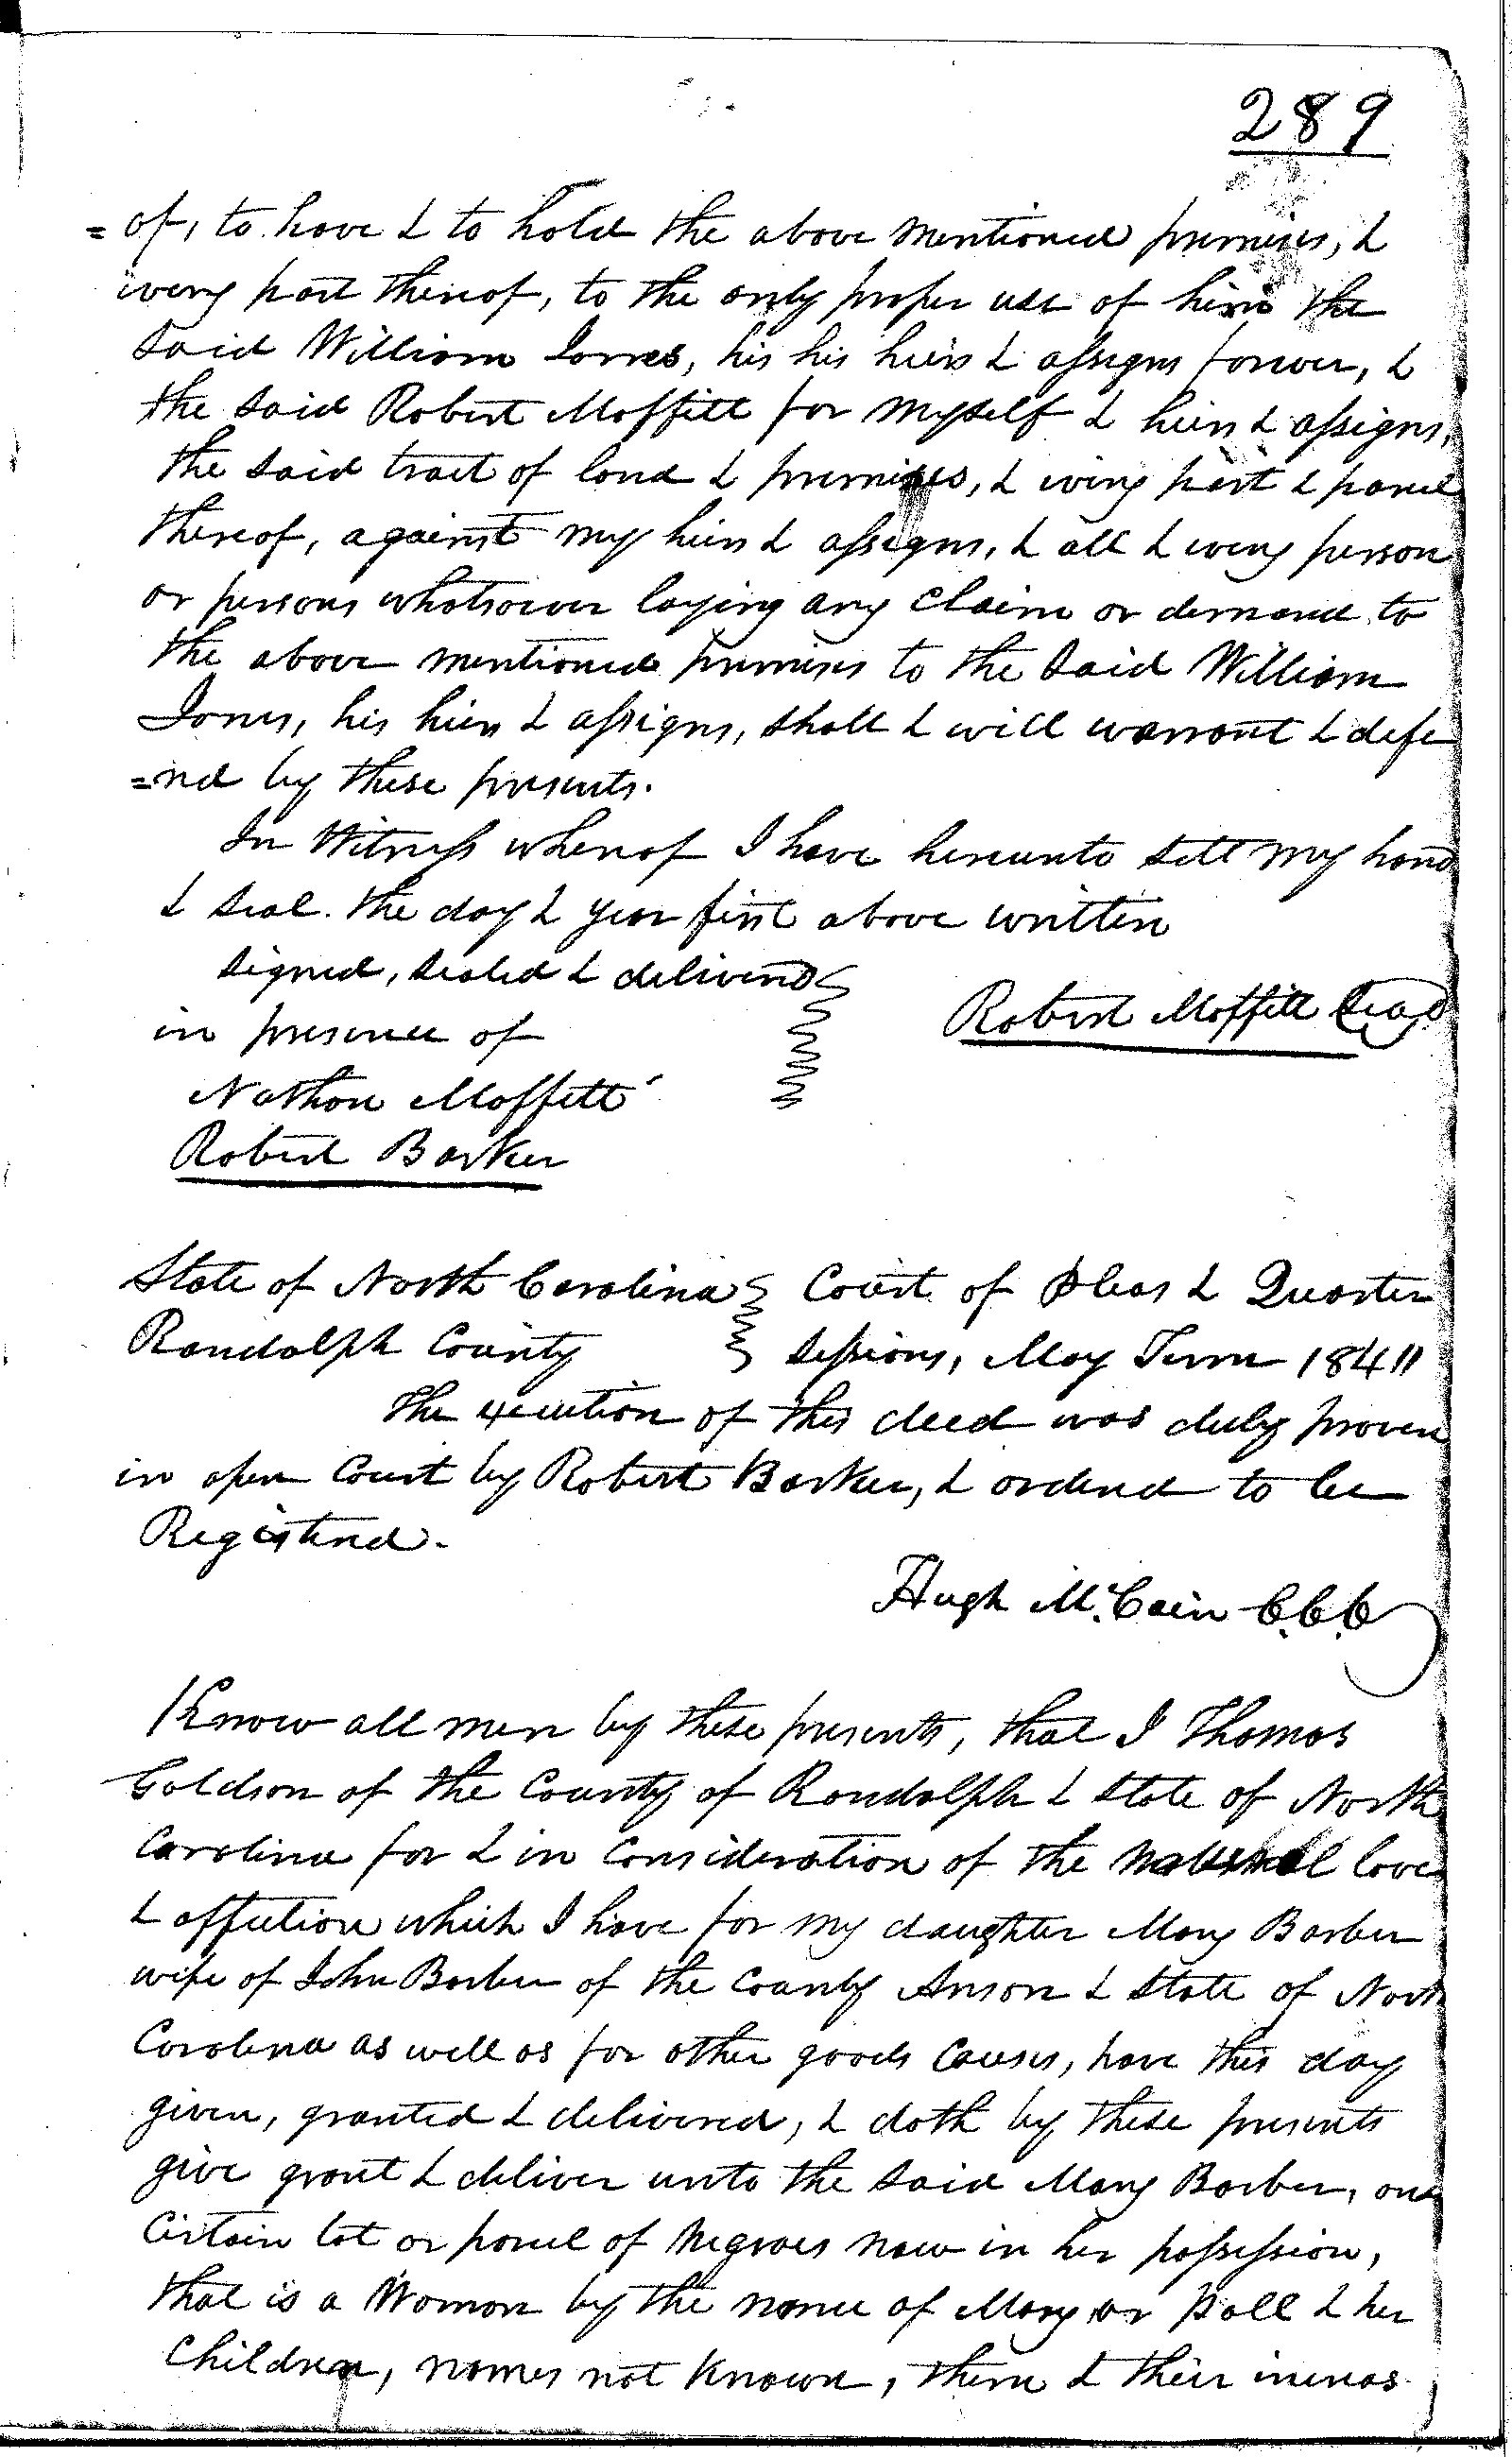 289
=of, to have & to hold the above mentioned premises, &
every part thereof, to the only proper use of him the
said William Jones, his his heirs & assigns forever, &
the said Robert Moffitt for myself & heirs & assigns,
the said tract of land & premises, & every part & parcel
thereof, against my heirs & assigns, & all & every person
or persons whatsoever laying any claim or demand to
the above mentioned premises to the said William
Jones, his heirs & assigns, shall & will warrant & defe
=nd by these presents.
In Witness whereof I have hereunto sett my hand
& seal. the day & year first above written
signed, sealed & delivered
in presence of
Robert Moffitt Seal
Nathan Moffitt
Robert Barker
State of North Carolina Court of Pleas & Quarter
Randolph County Sessions, May Term 1841
The execution of this deed was duly proven
in open Court by Robert Barker, & ordered to be
Registered.
Hugh McCain C.C.C
Know all men by these presents, that I Thomas
Goldson of the County of Randolph & State of North
Carolina for & in Consideration of the natural love
& affection which I have for my daughter Mary Barber
wife of John Barber of the County Anson & State of North
Carolina as well as for other goods Causes, have this day
given, granted & delivered, & doth by these presents
give grant & deliver unto the said Mary Barber, one
Certain lot or parcel of Negroes now in her possession,
that is a Woman by the name of Mary or Poll & her
Children, names not Known, them & their increas